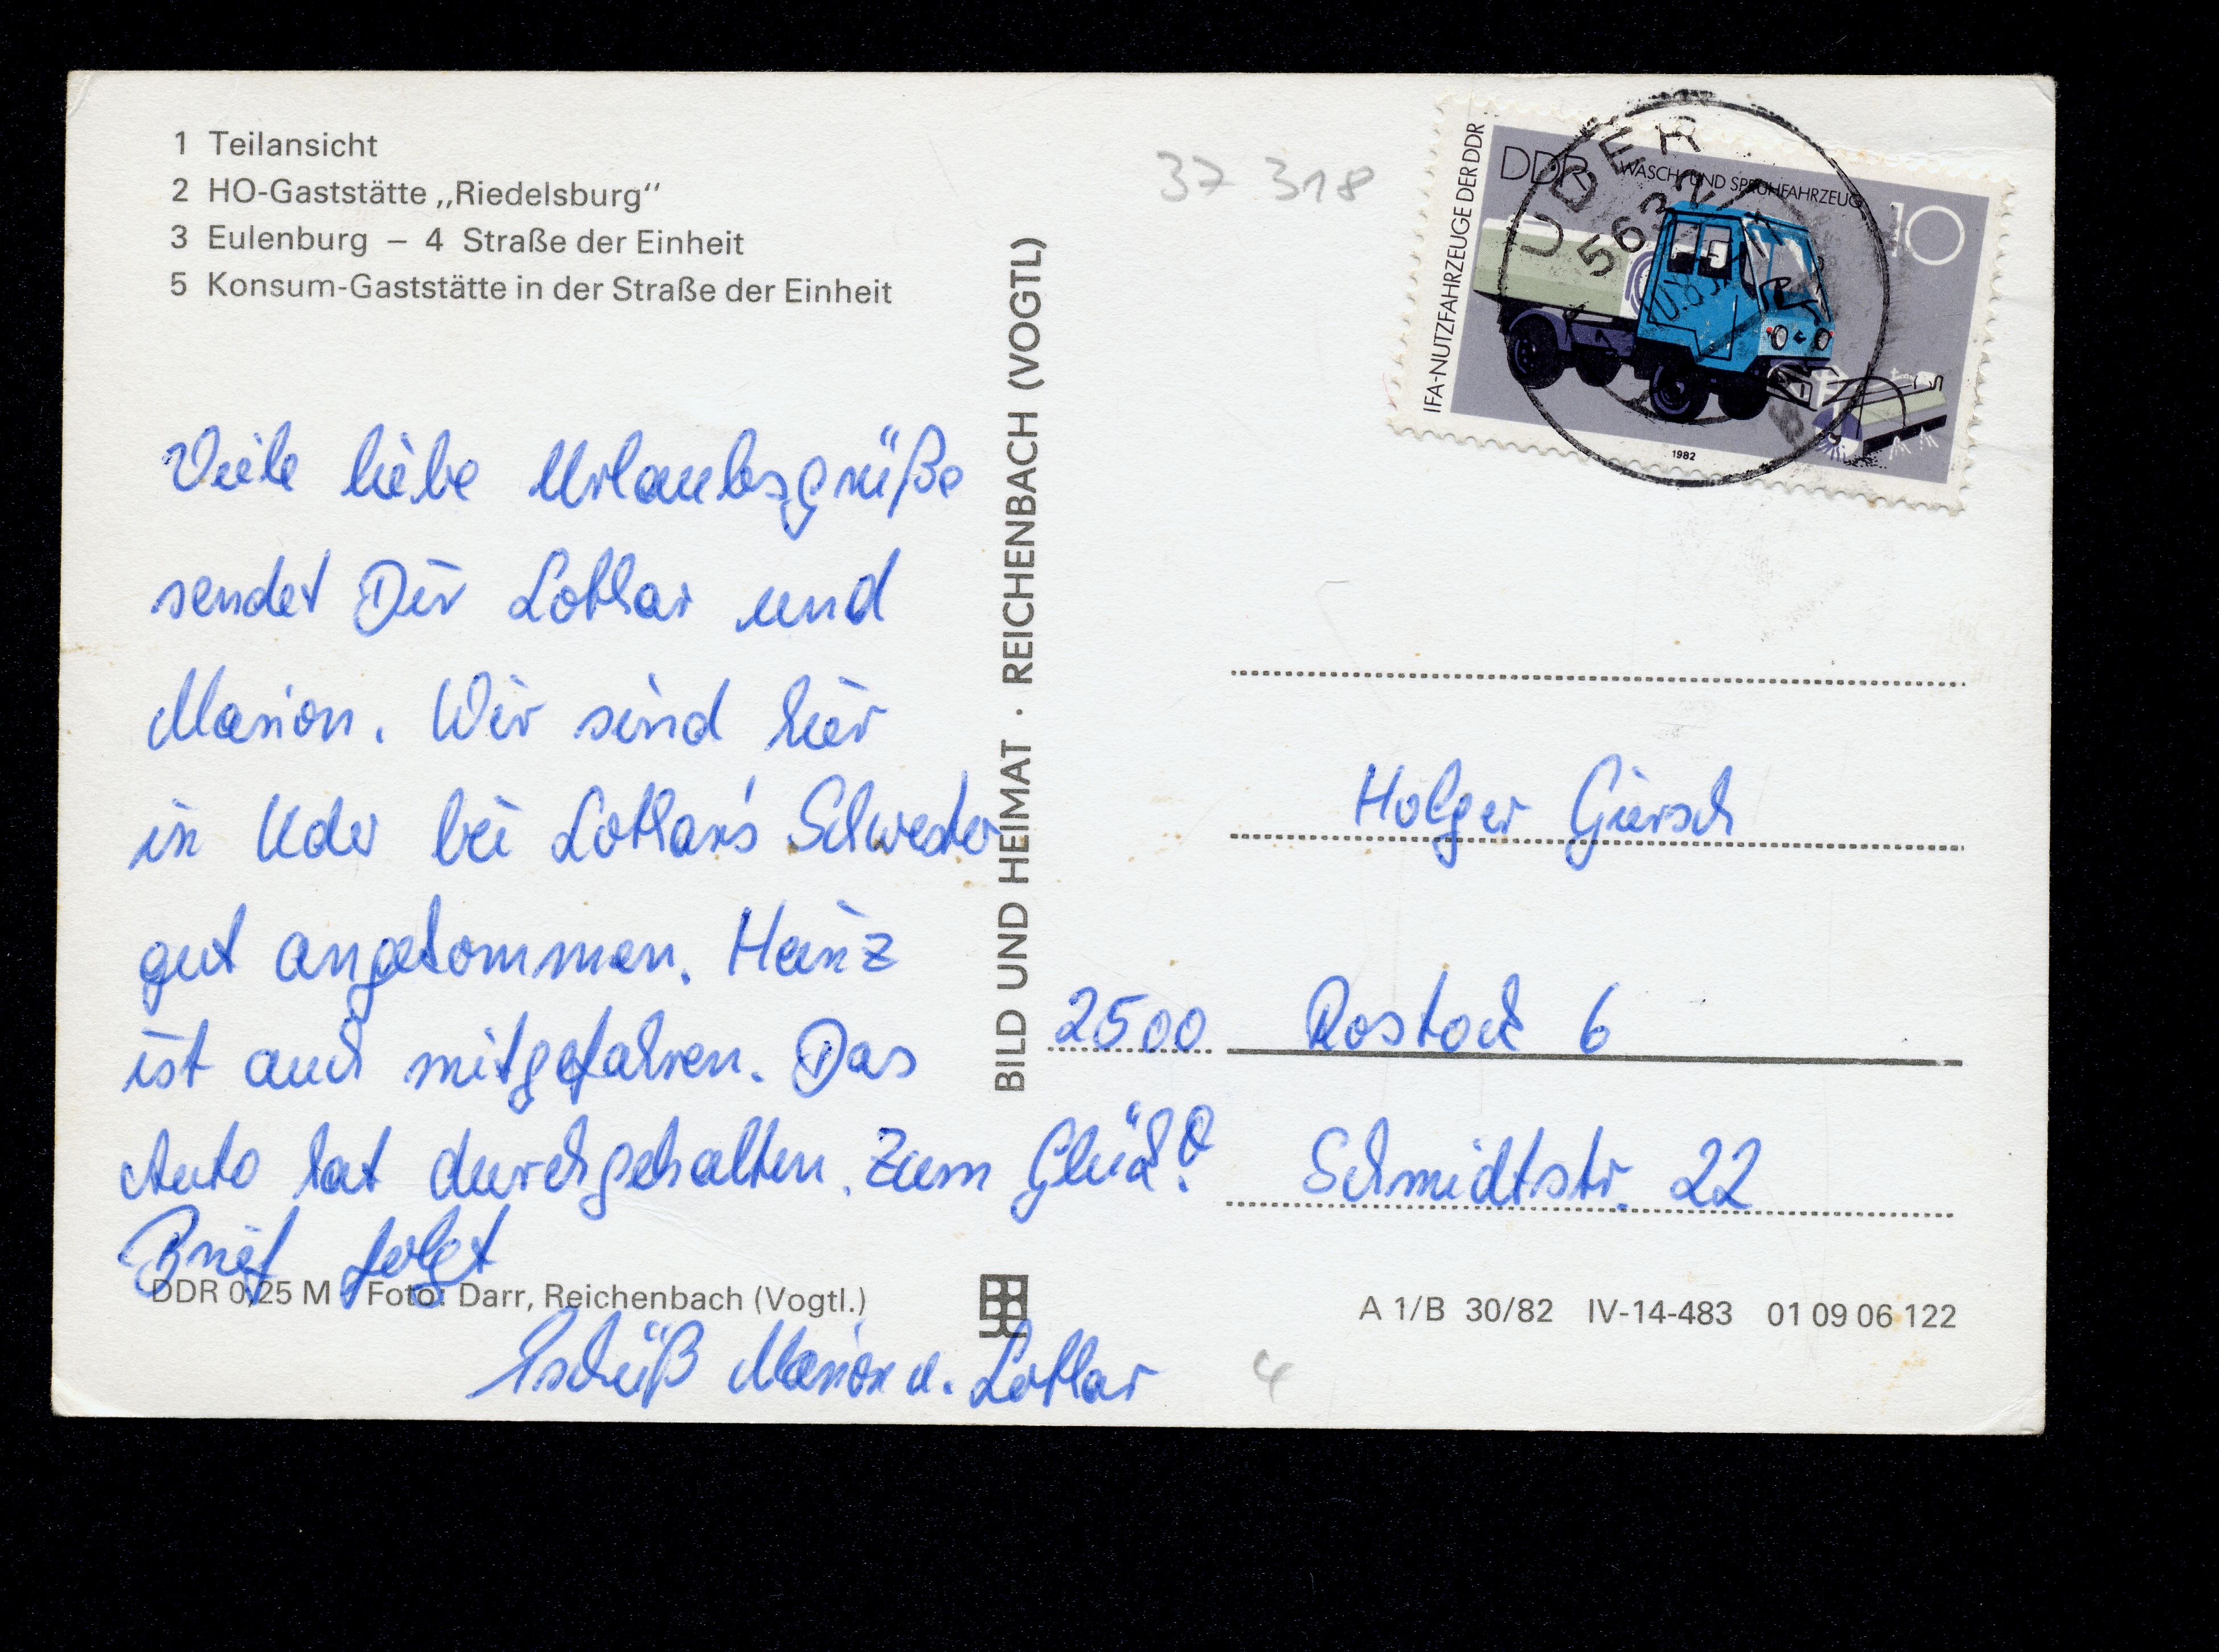 1 Teilansicht
2 HO-Gaststätte „Riedelsburg“
3 Eulenburg – 4 Straße der Einheit
5 Konsum-Gaststätte in der Straße der Einheit
37 318
IFA-NUTZFAHRZEUGE DER DDR
DDR WASCH- UND SPRÜHFAHRZEUG
10
1982
UDER
5632
Viele liebe Urlaubsgrüße
sendet Dir Lothar und
Marion. Wir sind hier
in Uder bei Lothar's Schwester
gut angekommen. Heinz
ist auch mitgefahren. Das
Auto hat durchgehalten. Zum Glück!
Brief folgt
Tschüß Marion u. Lothar
BILD UND HEIMAT · REICHENBACH (VOGTL)
Holger Giersch
2500 Rostock 6
Schmidtstr. 22
DDR 0,25 M Foto: Darr, Reichenbach (Vogtl.)
A 1/B 30/82 IV-14-483 01 09 06 122
4